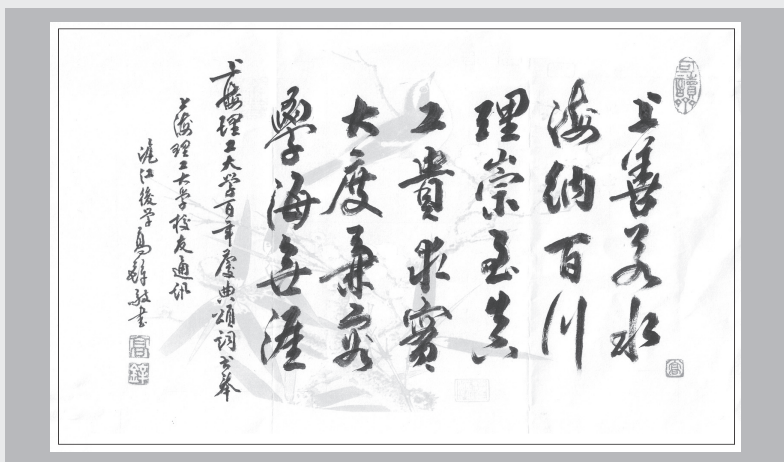 上善若水
海纳百川
理崇至真
工貴求實
大度兼容
學海無涯
上海理工大学百年慶典頌詞书奉
上海理工大学校友通訊
滬江後学高
敬书